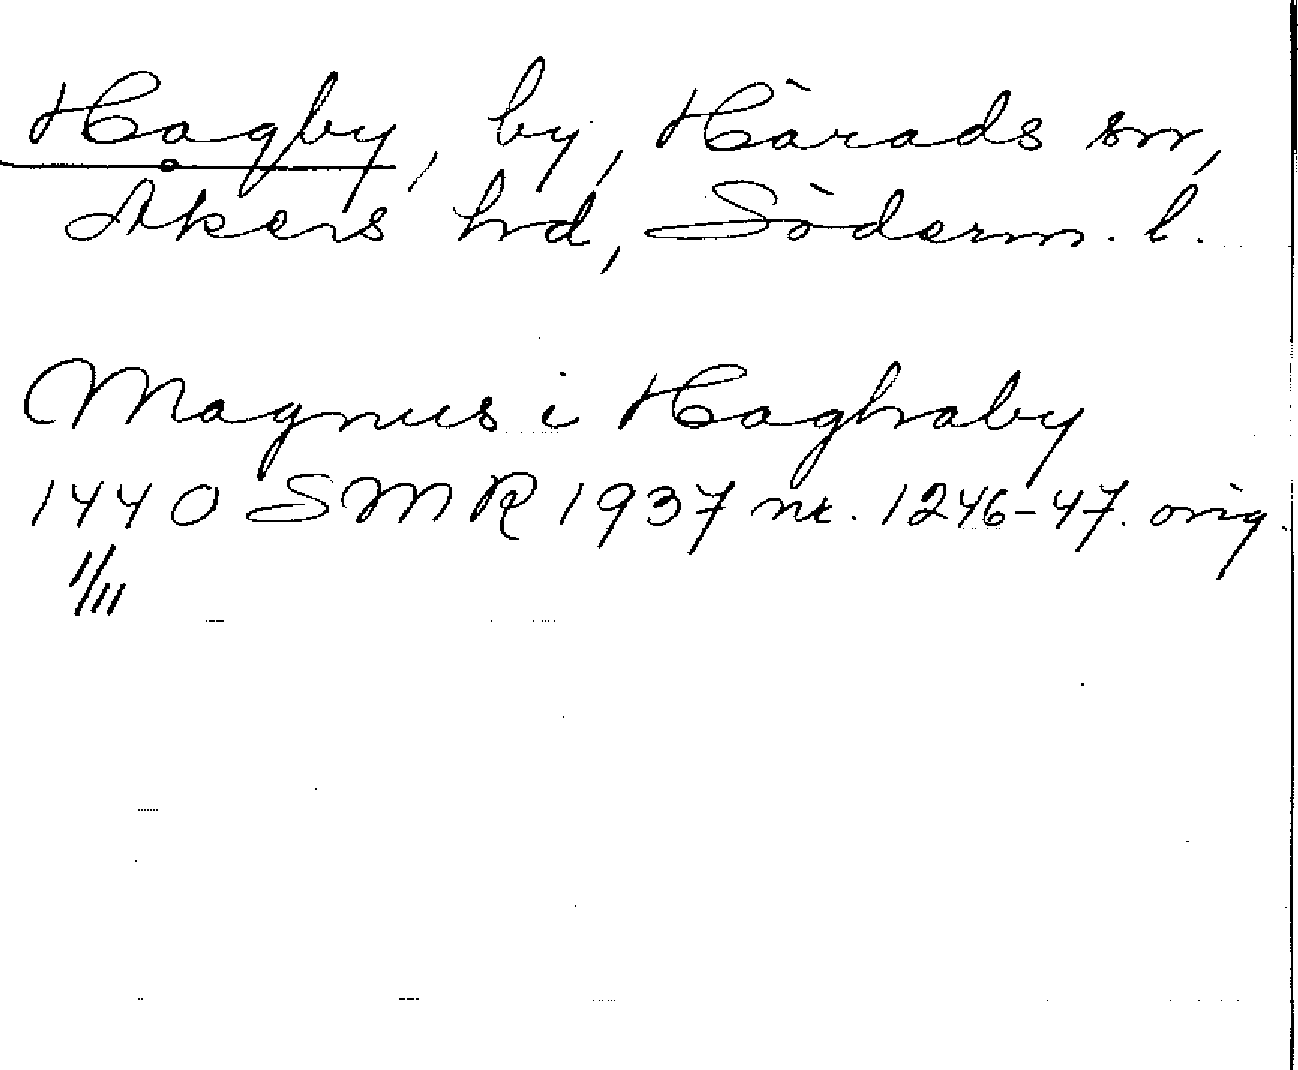 Hagby, by, Härads sn,
Åkers hd, Söderm. l.
Magnus i Haghaby
1440 SMR 1937 nr. 1246-47. orig.
1/11